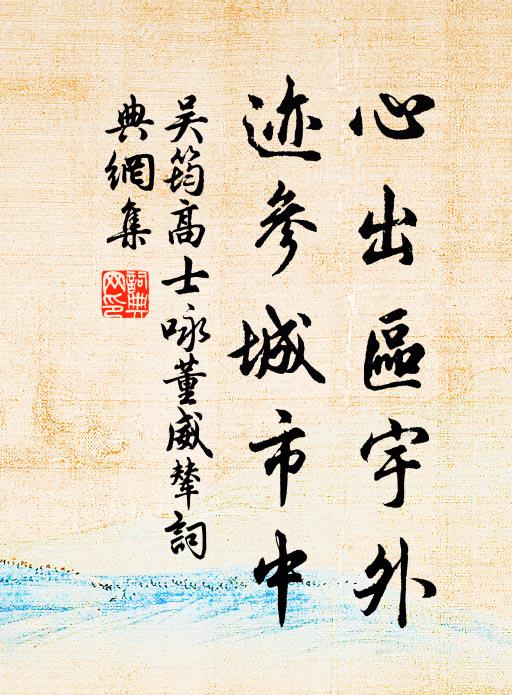 心出區宇外
迹參城市中
吴筠高士咏董威輦詞
典網集
詞典網印